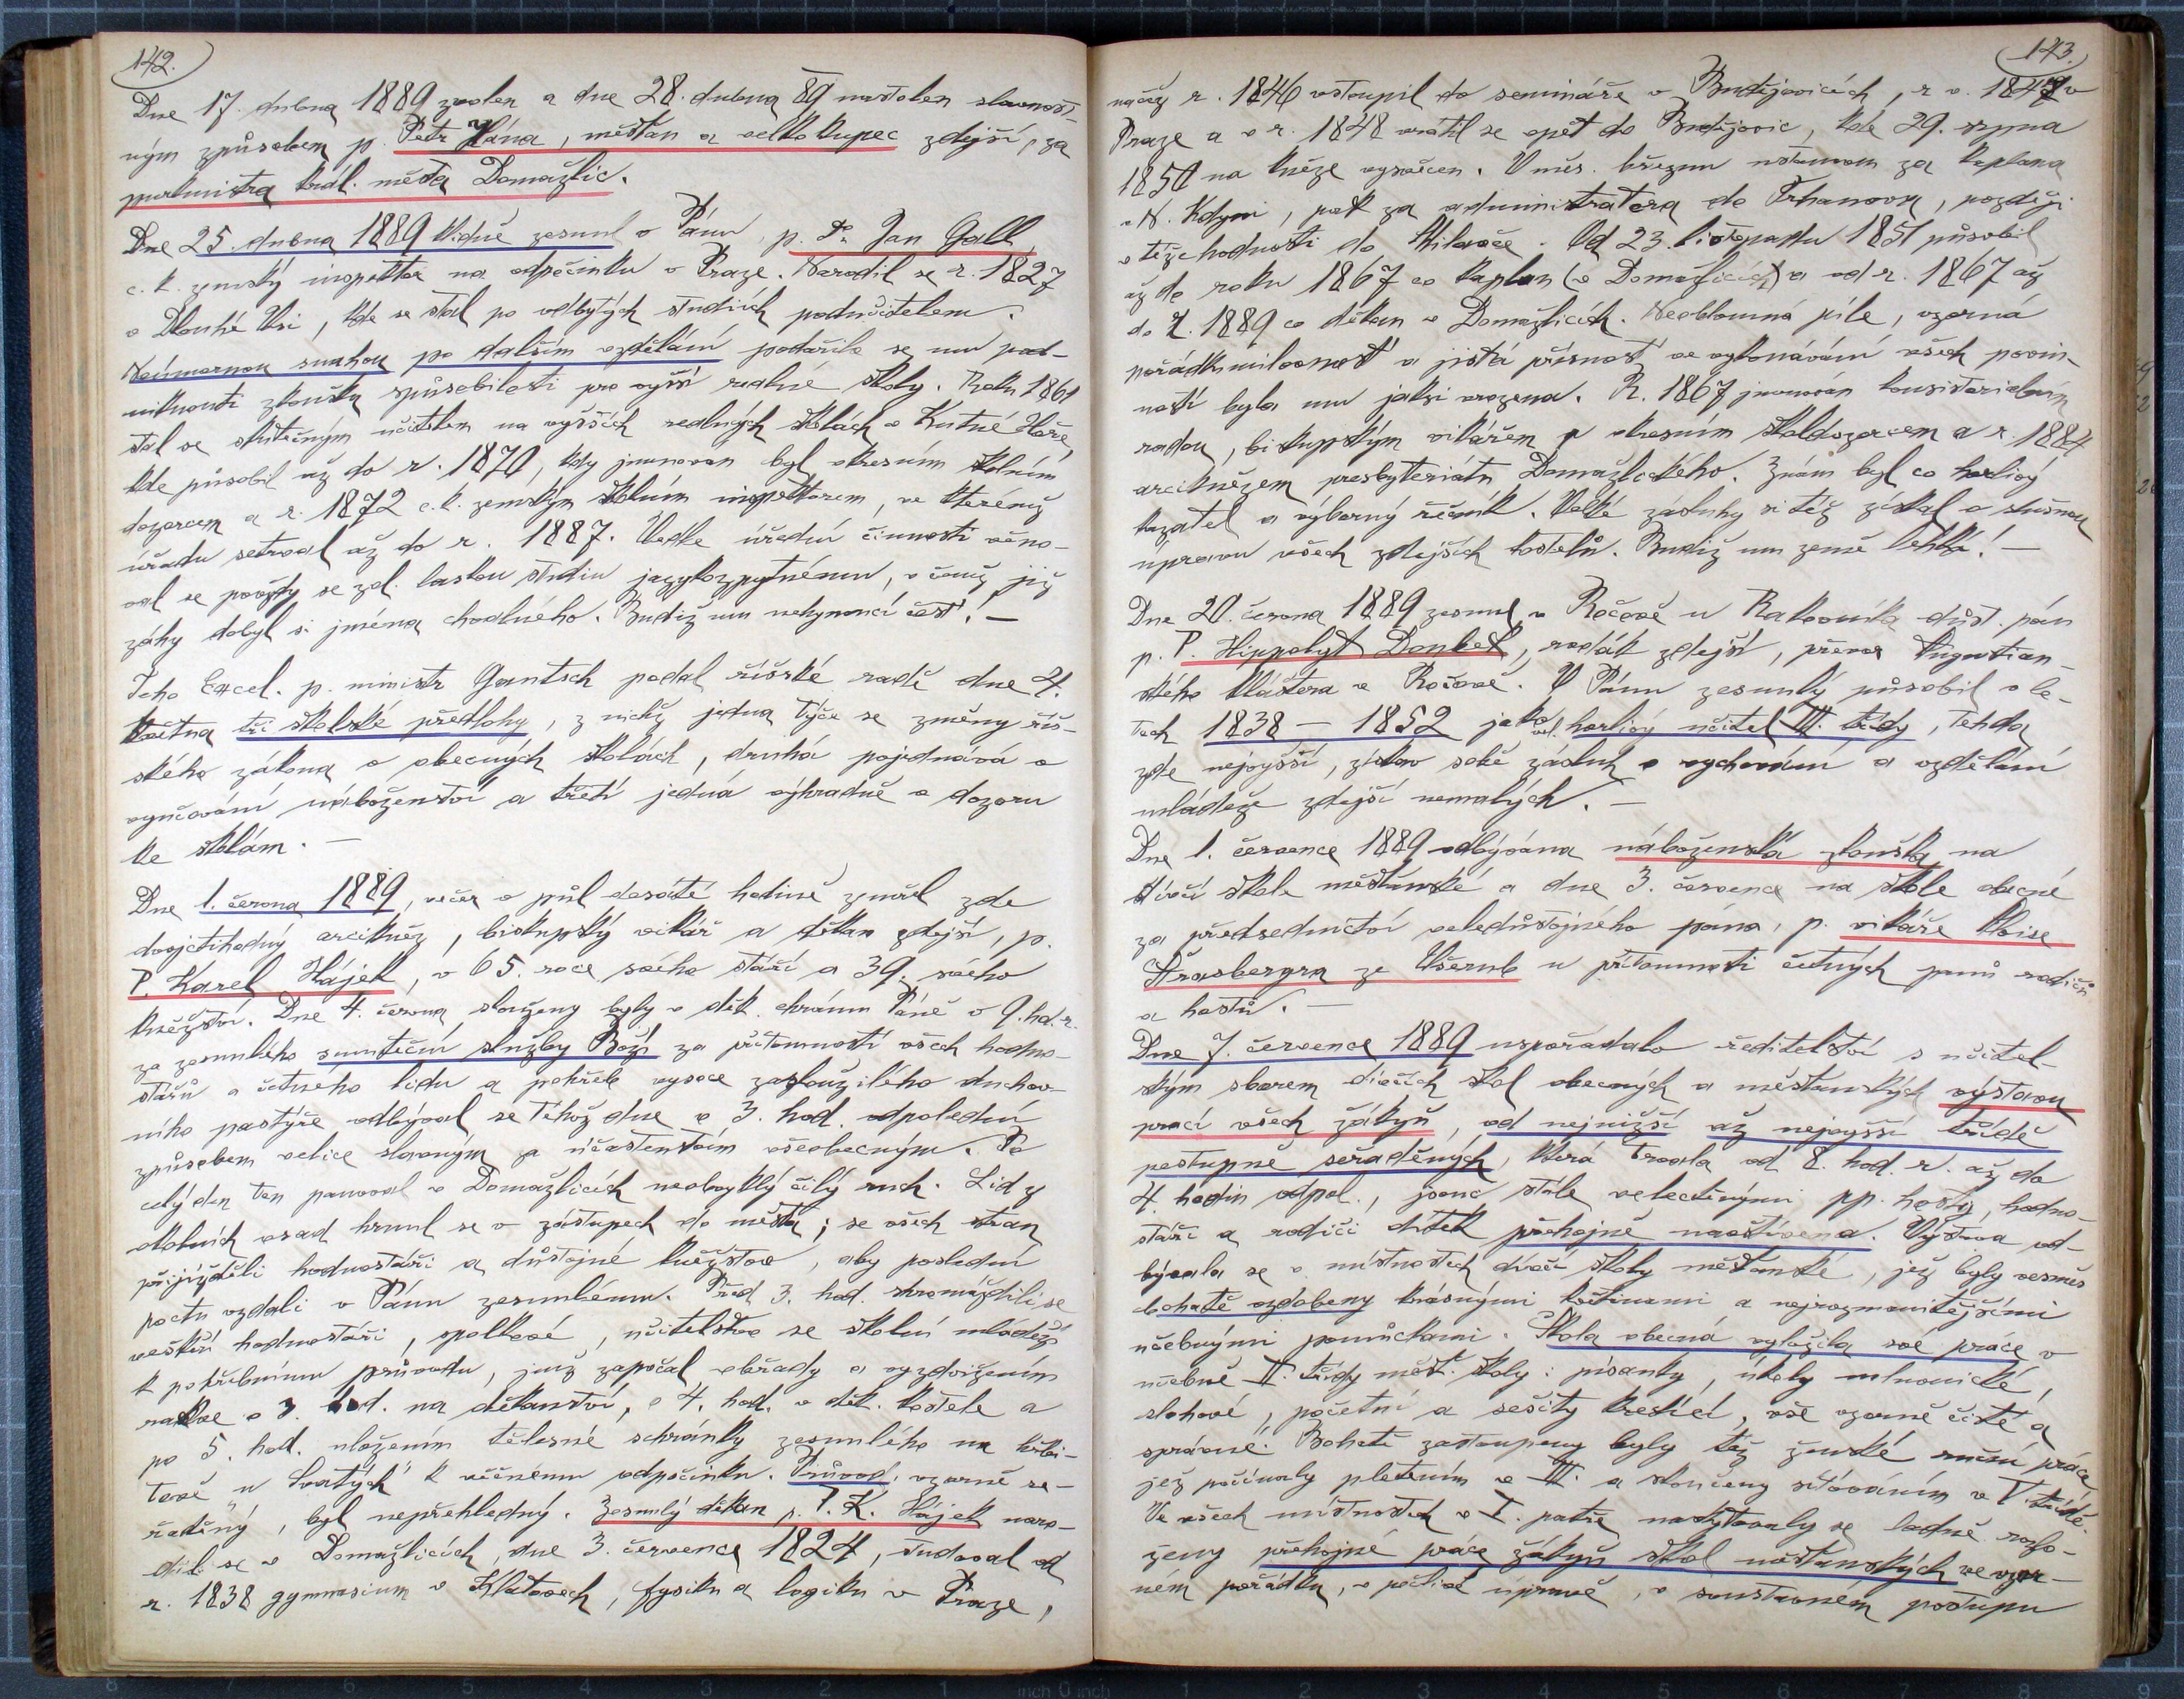 142.
Dne 17. dubna 1889 zvolen a dne 28. dubna 89 nastolen slavnost-
ným způsobem p. Petr Hána, měšťan a velkokupec zdejší, za
purkmistra král. města Domažlic.
Dne 25. dubna 1889 klidně zesnul v Pánu p. Dr. Jan Gall,
c. k. zemský inspektor na odpočinku v Praze. Narodil se r. 1827
v Dlouhé Vsi, kde se stal po odbytých studiích podučitelem.
Neúmornou snahou po dalším vzdělání podařilo se mu pod-
niknouti zkoušku způsobilosti pro vyšší reálné školy. Roku 1861
stal se skutečným učitelem na vyšších reálných školách v Kutné Hoře,
kde působil až do r. 1870, kdy jmenován byl okresním školním
dozorcem a r. 1872 c. k. zemským školním inspektorem, ve kterémž
úřadu setrval až do r. 1887. Vedle úřední činnosti věno-
val se povždy se zvl. láskou studiu jazykozpytnému, v čemž již
záhy dobyl si jména chvalného. Budiž mu nehynoucí čest! —
Jeho Excel. p. ministr Gautsch podal říšské radě dne 4.
května tři školské předlohy, z nichž jedna týče se změny říš-
ského zákona o obecných školách, druhá pojednává o
vyučování náboženství a třetí jedná výhradně o dozoru
ke školám. —
Dne 1. června 1889, večer o půl desáté hodině zemřel zde
dvojctihodný arcikněz, biskupský vikář a děkan zdejší, p.
P. Karel Hájek, v 65. roce svého stáří a 39. svého
kněžství. Dne 4. června slouženy byly v děk. chrámu Páně v 9. hod. r.
za zesnulého smuteční služby Boží za přítomnosti všech hodno-
stářů a četného lidu a pohřeb vysoce zasloužilého duchov-
ního pastýře odbýval se téhož dne o 3. hod. odpolední
způsobem velice slavným za účastenstvím všeobecným. Po
celý den ten panoval v Domažlicích neobvyklý čilý ruch. Lid z
okolních osad hrnul se v zástupech do města; se všech stran
přijížděli hodnostáři a důstojné kněžstvo, aby poslední
poctu vzdali v Pánu zesnulému. Před 3. hod. shromáždili se
veškeří hodnostáři, spolkové, učitelstvo se školní mládeží
k pohřebnímu průvodu, jenž započal obřady a vyzdvižením
rakve o 3. hod. na děkanství, o 4. hod. v děk. kostele a
po 5. hod. uložením tělesné schránky zesnulého na hřbi-
tově „u Svatých" k věčnému odpočinku. Průvod, vzorně se-
řaděný, byl nepřehledný. Zesnulý děkan p. P. K. Hájek naro-
dil se v Domažlicích, dne 3. července 1824, studoval od
r. 1838 gymnasium v Klatovech, fysiku a logiku v Praze,
143.
načež r. 1846 vstoupil do semináře v Budějovicích, r v. 1847 v
Praze a v r. 1848 vrátil se opět do Budějovic, kde 29. srpna
1850 na kněze vysvěcen. V měs. březnu ustanoven za kaplana
v N. Kdyni, pak za administratora do Trhanova, později
v též hodnosti do Milavče. Od 23. listopadu 1851 působil
až do roku 1867 co kaplan (v Domažlicích) a od r. 1867 až
do r. 1889 co děkan v Domažlicích. Neoblomná píle, vzorná
pořádkumilovnosť a jistá přísnosť ve vykonávání všech povin-
ností byla mu jaksi vrozena. R. 1867 jmenován konsistorialním
radou, biskupským vikářem a okresním školdozorcem a r. 1884
arciknězem presbyteriátu Domažlického. Znám byl co horlivý
kazatel a výborný řečník. Velké zásluhy si též získal o slušnou
úpravu všech zdejších kostelů. Budiž mu země lehká! —
Dne 20. června 1889 zesnul v Ročově u Rakovníka důst. pán
p. P. Hippolyt Donbek, rodák zdejší, převor Augustian-
ského kláštera v Ročově. V Pánu zesnulý působil v le-
tech 1838 — 1852 jako vel. horlivý učitel III. třídy, tehda
zde nejvyšší, získav sobě zásluh o vychování a vzdělání
mládeže zdejší nemalých. —
Dne 1. července 1889 odbývána náboženská zkouška na
dívčí škole měšťanské a dne 3. července na škole obecné
za předsednictví veledůstojného pána, p. vikáře Aloise
Štrasbergra ze Všerub u přítomnosti četných panů rodičů
a hostů. —
Dne 7. července 1889 uspořádalo ředitelství s učitel-
ským sborem dívčích škol obecných a měšťanských výstavu
prací všech žákyň, od nejnižší až nejvyšší třídě
postupně seřaděných, která trvala od 8. hod. r. až do
4. hodin odpol., jsouc stále velectěnými pp. hosty, hodno-
stáři a rodiči dítek přehojně navštívena. Výstava od-
bývala se v místnostech dívčí školy měšťanské, jež byly vesměs
bohatě ozdobeny krásnými květinami a nejrozmanitějšími
učebnými pomůckami. Škola obecná vyložila své práce v
učebně II. třídy měšť. školy: písanky, úkoly mluvnické,
slohové, početní a sešity kreslicí, vše vzorně čisté a
správné. Bohatě zastoupeny byly též ženské ruční práce,
jež počínaly pletením ve III. a skončeny síťováním v V. třídě.
Ve všech místnostech v I. patře naskytovaly se ladně rozlo-
ženy přehojné práce žákyň škol měšťanských ve vzor-
ném pořádku, v pečlivé úpravě, v soustavném postupu